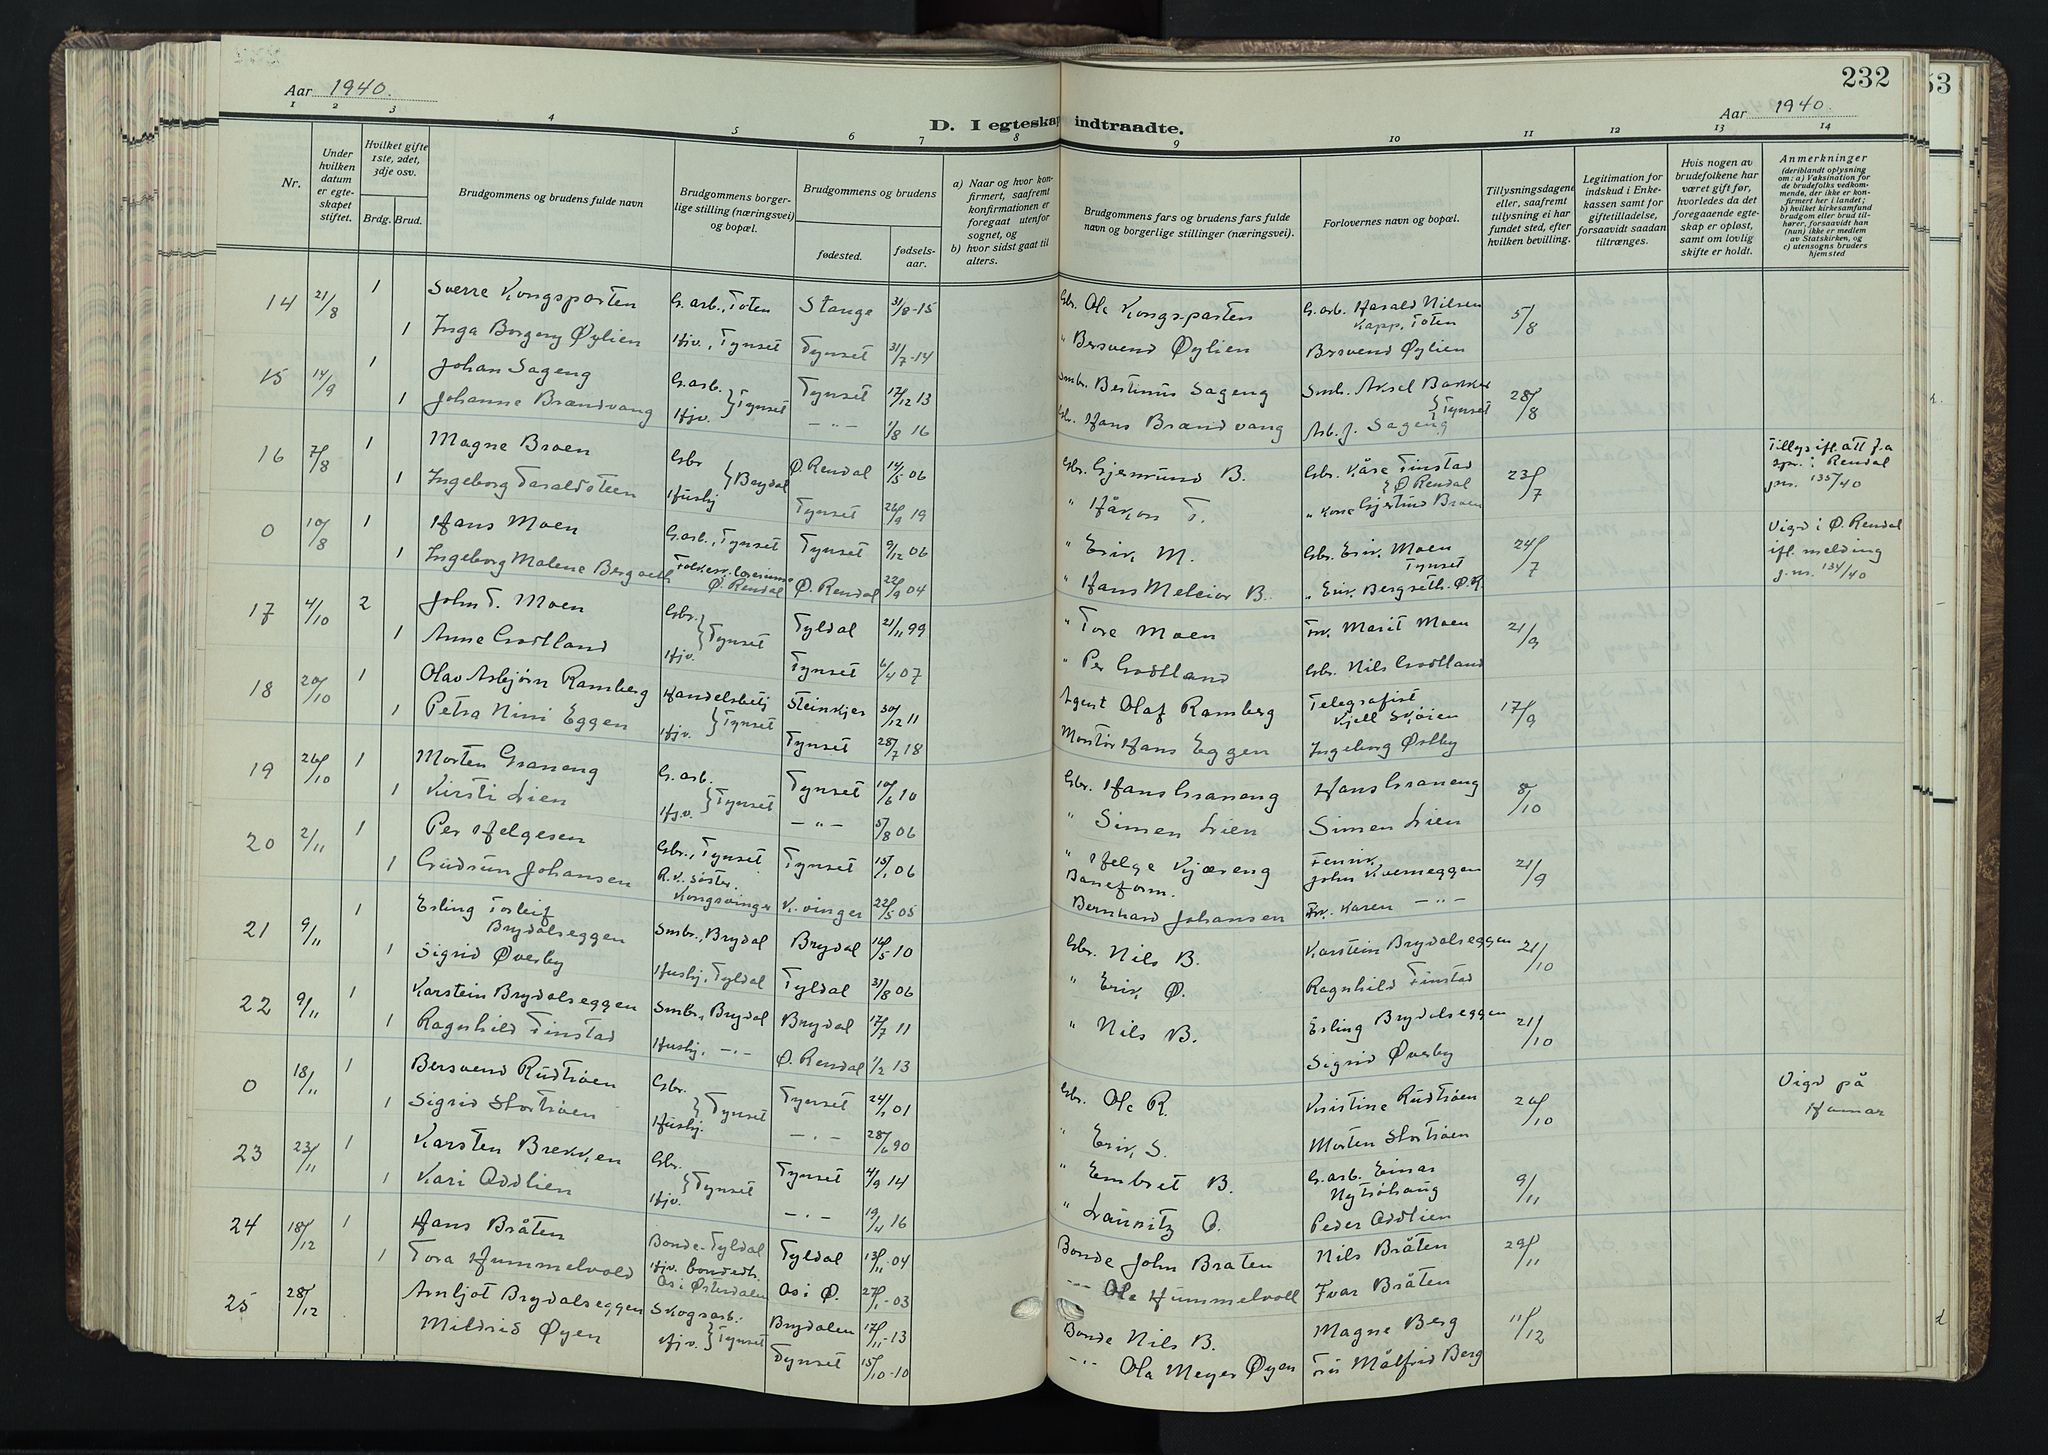 232
Aar 1940.
Aar 1940.
D. I egteskap indtraadte.
1 2 3 4 5 6 7 8 9 10 11 12 13 14
Nr.
Under hvilken datum er egteskapet stiftet.
Hvilket gifte 1ste, 2det, 3dje osv.
Brdg. Brud.
Brudgommens og brudens fulde navn
Brudgommens borgerlige stilling (næringsvei) og bopæl.
Brudgommens og brudens
fødested.
fødselsaar.
a) Naar og hvor konfirmert, saafremt konfirmationen er foregaat utenfor sognet, og
b) hvor sidst gaat til alters.
Brudgommens fars og brudens fars fulde navn og borgerlige stillinger (næringsvei).
Forlovernes navn og bopæl.
Tillysningsdagene eller, saafremt tillysning ei har fundet sted, efter hvilken bevilling.
Legitimation for indskud i Enkekassen samt for giftetilladelse, forsaavidt saadan tiltrænges.
Hvis nogen av brudefolkene har været gift før, hvorledes da det foregaaende egteskap er opløst, samt om lovlig skifte er holdt.
Anmerkninger (deriblandt oplysning om: a) Vaksination for de brudefolks vedkommende, der ikke er konfirmert her i landet; b) hvilket kirkesamfund brudgom eller brud tilhører, forsaavidt han (hun) ikke er medlem av Statskirken, og c) utensogns bruders hjemsted
14 21/8 1 Sverre Kongsparten G.arb., Toten Stange 31/8-15 Gbr. Ole Kongsparten G.arb. Harald Nilsen Kapp, Toten 5/8
1 Inga Borgeny Øylien Hjv., Tynset Tynset 31/7-14 " Bersvend Øylien Bersvend Øylien
15 14/9 1 Johan Sageng G.arb. } Tynset Tynset 17/12 13 Smbr. Bestinus Sageng Smb. Aksel Bakken } Tynset 28/8
1 Johanne Brandvang Hjv. -"- 1/8 16 Gbr. Hans Brandvang Arb. J. Sageng
16 7/8 1 Magne Broen Gbr } Brydal Ø. Rendal 14/5 06 Gbr. Gjermund B. Gbr. Kåre Finstad } Ø Rendal 23/7 Tillys ifl. att f.a spr. i Rendal j.nr. 135/40
1 Ingeborg Taraldsteen Husbj Tynset 26/9 19 " Håkon T. " Kone Gjertrud Broen
0 10/8 1 Hans Moen G.arb., Tynset Tynset 9/12 06 " Erik M. Gbr. Erik Moen Tynset 24/7 Vigd i Ø. Rendal ifl. melding j.nr. 134/40
1 Ingeborg Malene Bergseth Ø. Rendal Ø. Rendal 22/9 04 " Hans Melcior B. " Erik Bergseth. Ø.R.
17 4/10 2 John T. Moen Gbr. } Tynset Tyldal 21/11 99 " Tore Moen Fr. Marit Moen 21/9
1 Anne Godtland Hjv. Tynset 6/4 07 " Per Godtland Gbr. Nils Godtland
18 20/10 1 Olav Asbjørn Ramberg Handelsbetj } Tynset Steinkjer 30/12 11 Agent Olaf Ramberg Telegrafist Kjell Skøien 17/9
1 Petra Nini Eggen Hjv. Tynset 28/7 18 Montør Hans Eggen Ingeborg Østby
19 26/10 1 Morten Graneng G.arb. } Tynset Tynset 10/6 10 Gbr. Hans Graneng Hans Graneng 8/10
1 Kirsti Lien Hjv. -"- 5/8 06 " Simen Lien Simen Lien
20 2/11 1 Per Helgesen Gbr., Tynset Tynset 15/1 06 " Helge Kjæreng Fenrik John Kverneggen 21/9
1 Gudrun Johansen R.K. søster. Kongsvinger K.vinger 22/5 05 Baneform. Bernhard Johansen Frk. Karen -"-
21 9/11 1 Erling Torleif Brydalseggen Smbr., Brydal Brydal 14/5 10 Gbr. Nils B. Karstein Brydalseggen 21/10
1 Sigrid Øverby Husbj, Tyldal Tyldal 31/8 06 " Erik Ø. Ragnhild Finstad
22 9/11 1 Karstein Brydalseggen Smbr., Brydal Brydal 17/7 11 " Nils B. Erling Brydalseggen 21/10
1 Ragnhild Finstad Husbj, -"- Ø. Rendal 1/2 13 Sigrid Øverby
0 18/11 1 Bersvend Rudtrøen Gbr. } Tynset Tynset 24/1 01 Gbr. Ole R. Kristine Rudtrøen 20/10 Vigd på Hamar
1 Sigrid Stortrøen Husbj. -"- 28/6 90 " Erik S. Morten Stortrøen
23 23/11 1 Karsten Brekken Gbr. } Tynset Tynset 4/9 14 " Embret B. G.arb. Einar Nytrøhaug 9/11
1 Kari Oddlien Hjv. -"- 19/4 16 " Lauritz O. Peder Oddlien
24 18/12 1 Hans Bråten Bonde-Tyldal Tyldal 13/11-04 Bonde John Bråten Nils Bråten 29/11
1 Tora Hummelvold Hjv. bondedt. Os i Østerdalen Os i Ø. 27/1-03 -"- Ole Hummelvoll Ivar Bråten
25 28/12 Arnljot Brydalseggen Skogsarb. } Tynset Brydalen 17/11-13 Bonde Nils B. Magne Berg 11/12
Mildrid Øyen Hjv. Tynset 15/10-10 -"- Ola Meyer Øyen Fru Målfrid Berg